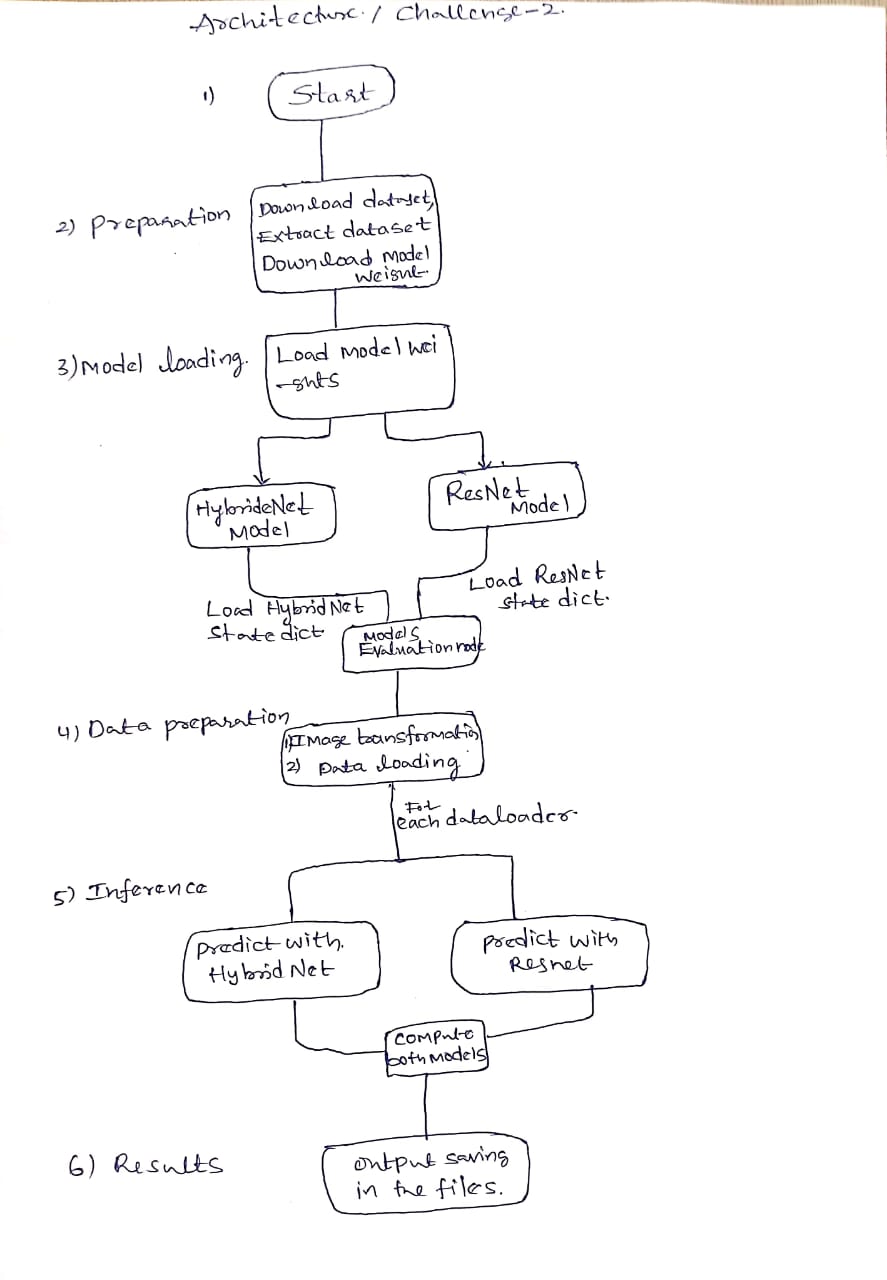 Architecture / Challenge-2.
1) Start
2) Preparation
Download dataset,
Extract dataset
Download Model
Weight.
3) Model loading.
Load Model wei
-ghts
HybrideNet
Model
ResNet
Model
Load HybridNet
State dict
Load ResNet
state dict.
Models
Evaluation node
4) Data preparation
1) Image transformation
2) Data loading
For
each dataloader.
5) Inference
predict with.
Hybrid Net
predict with
Resnet
Compute
both Models
6) Results
output saving
in the files.